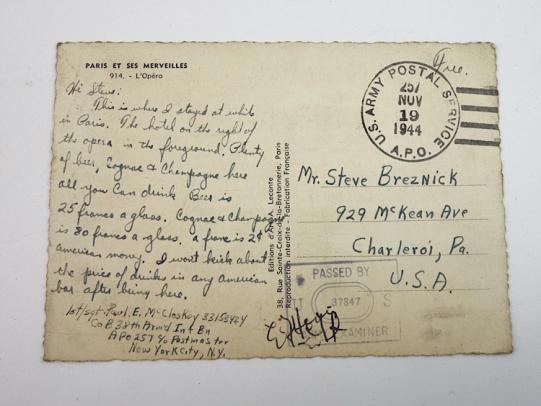 PARIS ET SES MERVEILLES
914. - L'Opéra
Hi Steve:
This is where I stayed at while
in Paris. The hotel on the right of
the opera in the foreground. Plenty
of beer, Cognac & Champagne here
all you can drink Beer is
25 francs a glass. Cognac & Champagne
is 80 francs a glass. a franc is 2¢
american money. I won't kick about
the price of drinks in any american
bar after being here.
1st/sgt Paul E. McCloskey 33153424
Co B 38th Arm'd Inf Bn
APO 257 c/o Postmaster
New York City, N.Y.
Editions d'Art A. Leconte
38, Rue Sainte-Croix-de-la-Bretonnerie, Paris
Reproduction interdite - Fabrication Française
Free.
U.S. ARMY POSTAL SERVICE
257
NOV
19
1944
A.P.O.
Mr. Steve Breznick
929 McKean Ave
Charleroi, Pa.
U.S.A.
PASSED BY
37847 S
EXAMINER